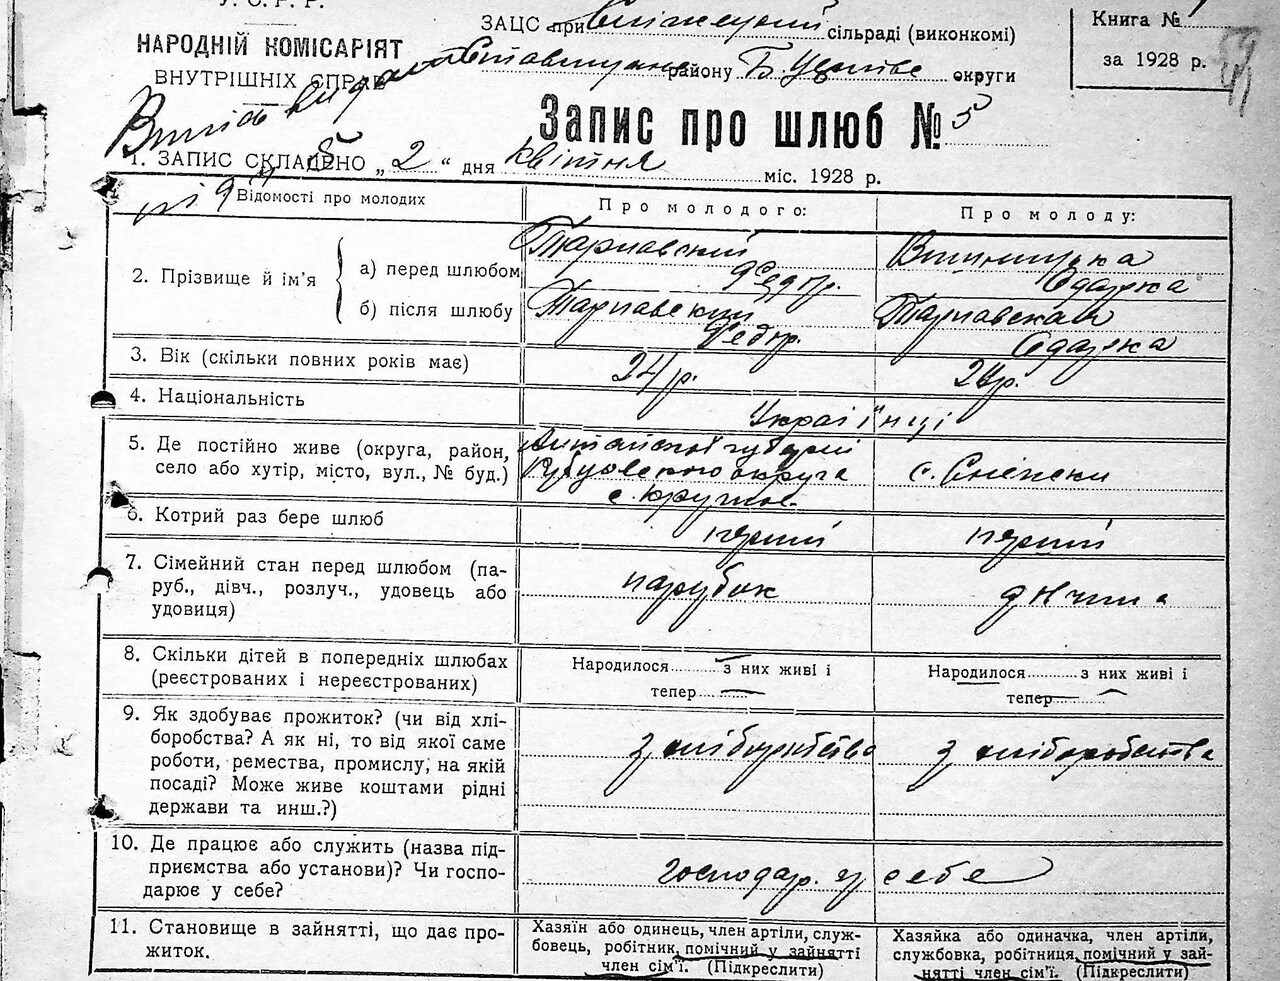 У. С. Р. Р.
НАРОДНІЙ КОМІСАРІЯТ
ВНУТРІШНІХ СПРАВ
ЗАЦС при сільраді (виконкомі)
району Б. Церкве округи
Книга №
за 1928 р.
Запис про шлюб № 5
1. ЗАПИС СКЛАДЕНО „ 2 “ дня квітня міс. 1928 р.
Відомості про молодих
Про молодого:
Про молоду:
2. Прізвище й ім'я
а) перед шлюбом
Тарнавский
Федір.
Винницька
Одарка
б) після шлюбу
Тарнавский
Федір.
Тарнавская
Одарка
3. Вік (скільки повних років має)
24 р.
4. Національність
Українці
5. Де постійно живе (округа, район,
село або хутір, місто, вул., № буд.)
округа
с.
с.
6. Котрий раз бере шлюб
перший
перший
7. Сімейний стан перед шлюбом (па-
руб., дівч., розлуч., удовець або
удовиця)
парубок
дівчина
8. Скільки дітей в попередніх шлюбах
(реєстрованих і нереєстрованих)
Народилося з них живі і
тепер
Народилося з них живі і
тепер
9. Як здобуває прожиток? (чи від хлі-
боробства? А як ні, то від якої саме
роботи, ремества, промислу, на якій
посаді? Може живе коштами рідні
держави та инш.?)
з хліборобства
з хліборобства
10. Де працює або служить (назва під-
приємства або установи)? Чи госпо-
дарює у себе?
господар. у себе
11. Становище в зайнятті, що дає про-
житок.
Хазяїн або одинець, член артіли, служ-
бовець, робітник, помічний у зайнятті
член сім'ї. (Підкреслити)
Хазяйка або одиначка, член артіли,
службовка, робітниця, помічний у зай-
нятті член сім'ї. (Підкреслити)